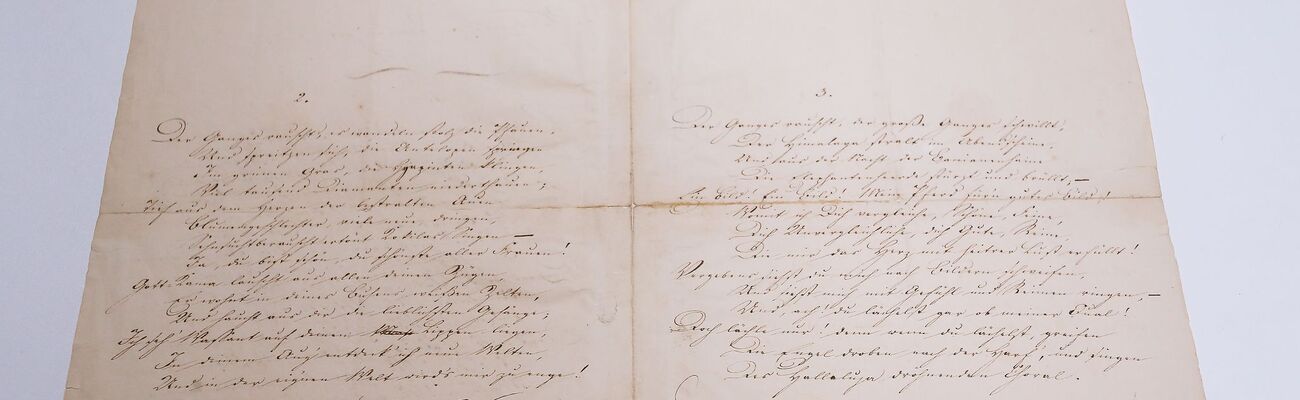 2.
Der Ganges rauscht, es wandeln stolz die Pfauen,
Und spreitzen sich, die Antilopen springen
Im grünen Gras, die Hyazinten klingen,
Viel tausend Diamanten niederthauen;
Tief aus dem Herzen der bestralten Auen
Blumengeschlechter, viele neue, dringen,
Sehnsuchtberauscht ertönt Kokilas Singen –
Ja, du bist schön, du schönste aller Frauen!
Gott-Kama lauscht aus allen deinen Zügen,
Er wohnt in deines Busens weißen Zelten,
Und haucht aus dir die lieblichsten Gesänge;
Ich seh Vassant auf deinen Lippen liegen,
In deinem Aug' entdeck' ich neue Welten,
Und in der eignen Welt wird's mir zu enge!
3.
Der Ganges rauscht, der große Ganges schwillt,
Der Himalaya stralt im Abendscheine,
Und aus der Nacht der Banianenheine
Die Elephantenheerde stürzt und brüllt, –
Ein Bild! Ein Bild! Mein Pferd für'n gutes Bild!
Womit ich Dich vergleiche, Schöne, Feine,
Dich Unvergleichliche, dich Gute, Reine,
Die mir das Herz mit heitrer Lust erfüllt!
Vergebens siehst du mich nach Bildern schweifen,
Und siehst mich mit Gefühl und Reimen ringen, –
Und, ach! du lächelst gar ob meiner Qual!
Doch lächle nur! denn wenn du lächelst, greifen
Die Engel droben nach der Harf', und singen
Des Hallaluja dröhnenden Choral.